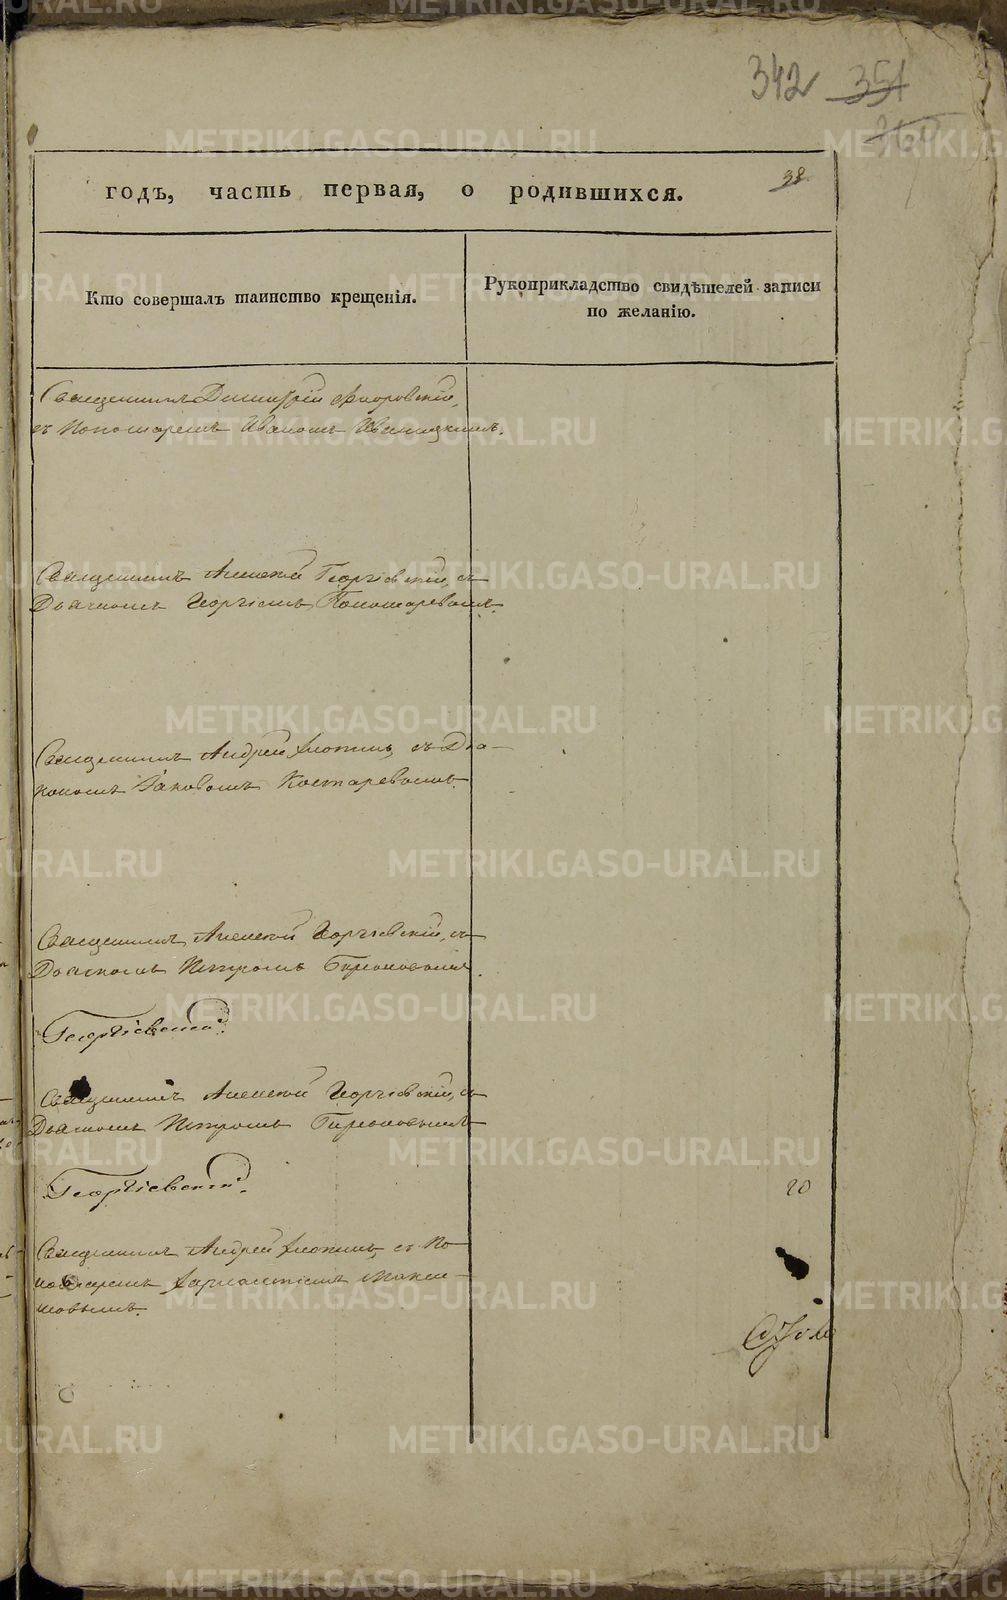 342 351
38
годъ, часть первая, о родившихся.
Кто совершалъ таинство крещенія.
Рукоприкладство свидѣтелей записи
по желанію.
Священникъ Димитрій Флоровскій,
съ Пономаремъ Иваномъ
Священникъ Алексей Георгіевскій, съ
Дьячкомъ Георгіемъ Пономаревымъ.
Священникъ Андрей съ Діа-
кономъ Іаковомъ Костаревымъ.
Священникъ Алексей Георгіевскій, съ
Дьячкомъ Петромъ
Георгіевскій.
Священникъ Алексей Георгіевскій, съ
Дьячкомъ Петромъ
Георгіевскій.
20
Священникъ Андрей съ По-
номаремъ Макси-
мовымъ.
METRIKI.GASO-URAL.RU